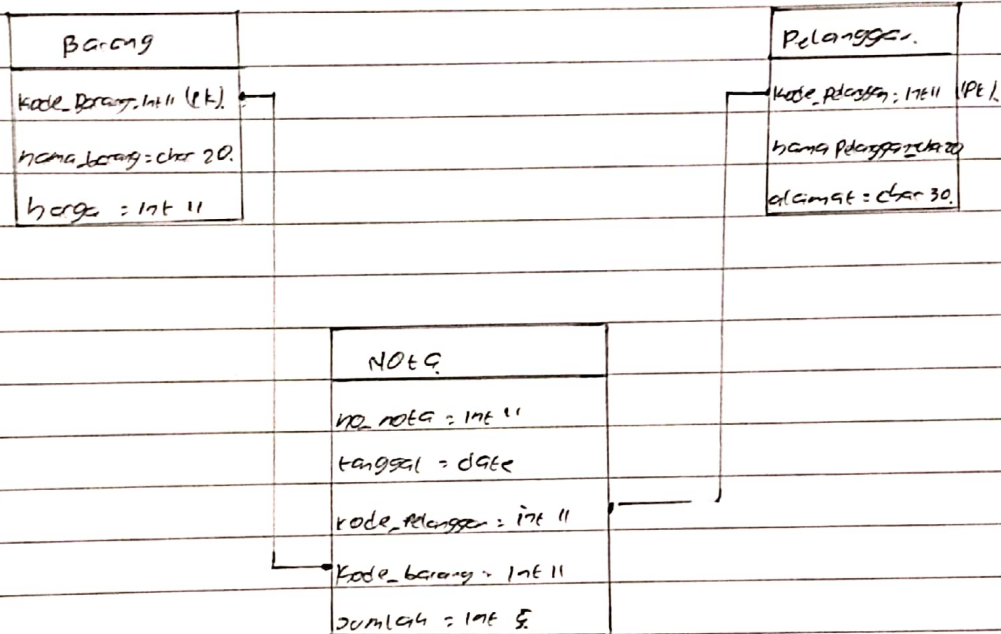 Barang
Kode_Barang: Int 11 (PK).
nama_barang = char 20.
harga = Int 11
Pelanggan.
Kode_Pelanggan: Int 11 (PK).
nama Pelanggan = char 20
alamat = char 30.
Nota
no_nota = Int 11
tanggal = date
kode_Pelanggan = int 11
Kode_barang = Int 11
Jumlah = Int 5